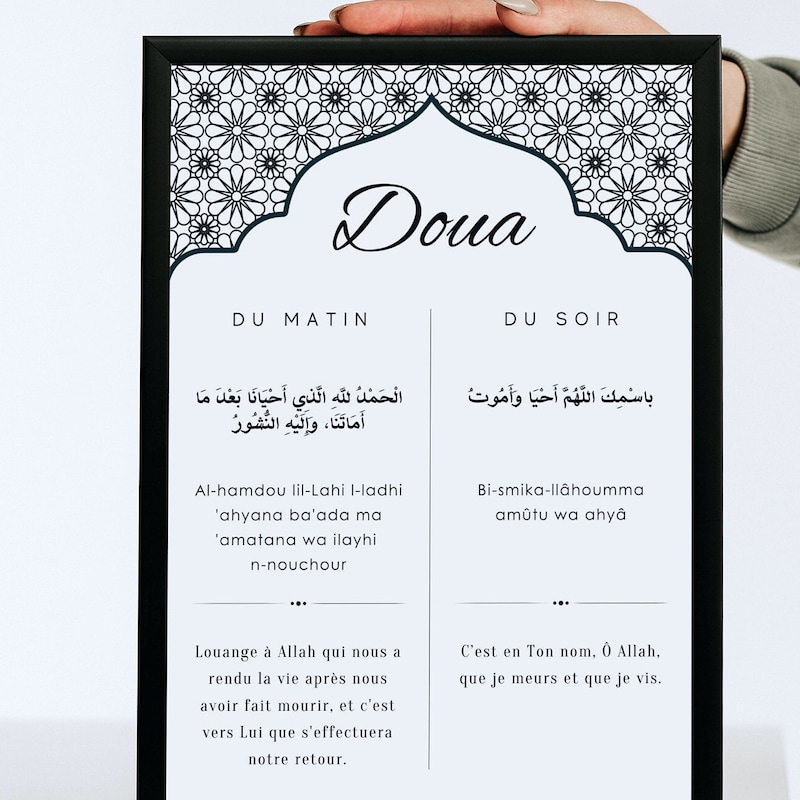 Doua
DU MATIN
الْحَمْدُ للَّهِ الَّذِي أَحْيَانَا بَعْدَ مَا
أَمَاتَنَا، وَإِلَيْهِ النُّشُورُ
Al-hamdou lil-Lahi l-ladhi
'ahyana ba'ada ma
'amatana wa ilayhi
n-nouchour
Louange à Allah qui nous a
rendu la vie après nous
avoir fait mourir, et c'est
vers Lui que s'effectuera
notre retour.
DU SOIR
بِاسْمِكَ اللَّهُمَّ أَحْيَا وَأَمُوتُ
Bi-smika-llâhoumma
amûtu wa ahyâ
C'est en Ton nom, Ô Allah,
que je meurs et que je vis.